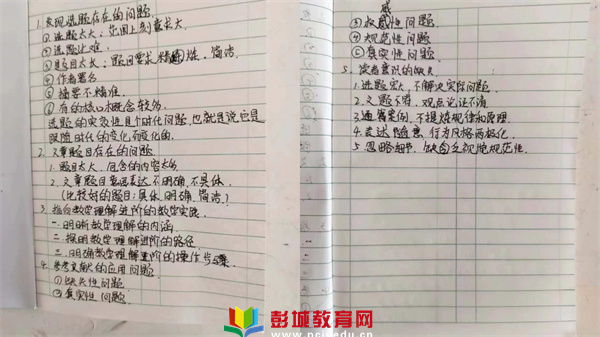 1. 发现选题存在的问题
② 选题太大;范围上刻意求大
③ 选题过难
④ 题目太长;题目要求精确性、简洁
④ 作者署名
⑤ 摘要不精准
⑥ 有的核心概念较多
选题的实效性是个时代问题,也就是说它是
跟随时代的变化而变化的
2. 文章题目存在的问题
1. 题目太大,包含的内容太多
2. 文章题目表达不明确,不具体
(比较好的题目:具体、明确、简洁)
3. 指向数学理解进阶的教学实践
一. 明晰数学理解的内涵
二. 探明数学理解进阶的路径
三. 明确数学理解进阶的操作步骤
4. 参考文献的应用问题
① 缺失性问题
② 真实性问题
③ 权威性问题
④ 规范性问题
⑤ 真实性问题
5. 读者意识的缺失
1. 选题宏大,不解决实际问题
2. 文题不符,观点论证不清
3. 通篇案例,不提炼规律和原理
4. 表述随意,行为风格两极化
5. 忽略细节,缺乏视觉规范性
彭城教育网